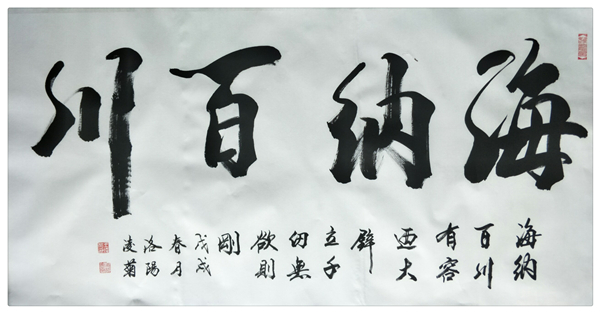 海纳百川
海纳
百川
有容
迺大
壁
立千
仞無
欲則
剛
戊戌
春月
洛陽
凌菊